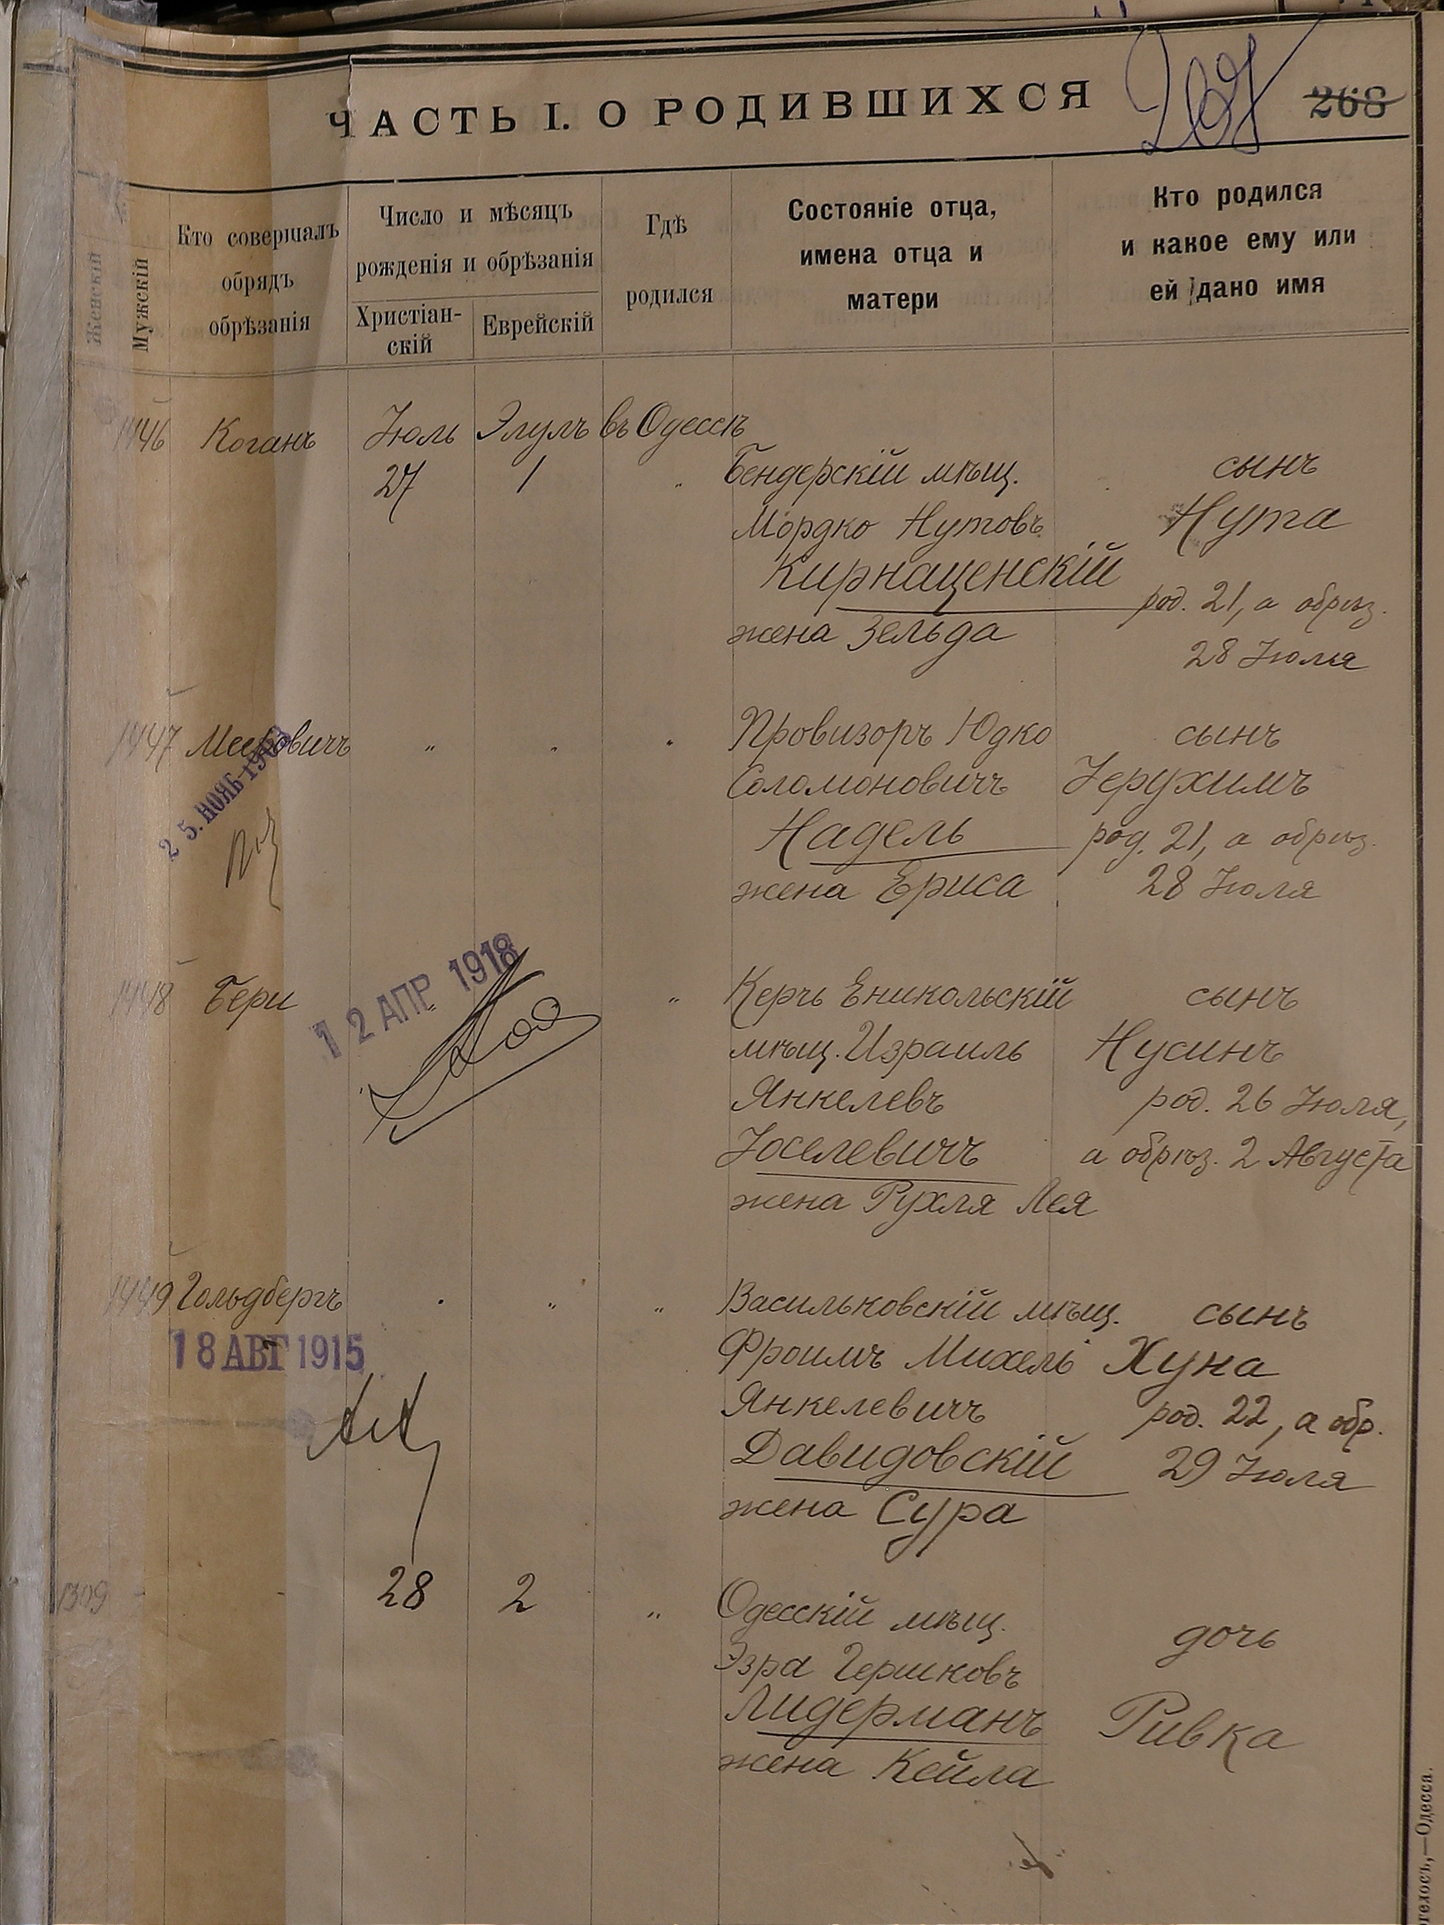 ЧАСТЬ I. О РОДИВШИХСЯ
268
Женскій
Мужскій
Кто совершалъ
обрядъ
обрѣзанія
Число и мѣсяцъ
рожденія и обрѣзанія
Христіан-
скій
Еврейскій
Гдѣ
родился
Состояніе отца,
имена отца и
матери
Кто родился
и какое ему или
ей дано имя
1446 Коганъ Іюль Элулъ въ Одессѣ
27 1 "
Бендерскій мѣщ.
Мордко Нутовъ
Кирнаценскій
жена Зельда
сынъ
Нута
род. 21, а обрѣз.
28 Іюля
1447 Мееровичъ " " "
25. НОЯБ 1903
Провизоръ Юдко
Соломоновичъ
Надель
жена Ериса
сынъ
Іерухимъ
род. 21, а обрѣз.
28 Іюля
1448 Бери " "
12 АПР 1918
Керчь Еникольскій
мѣщ. Израиль
Янкелевъ
Іоселевичъ
жена Рухля Лея
сынъ
Нусинъ
род. 26 Іюля,
а обрѣз. 2 Августа
1449 Гольдбергъ " " "
18 АВГ 1915
Васильковскій мѣщ.
Фроимъ Михель
Янкелевичъ
Давидовскій
жена Сура
сынъ
Хуна
род. 22, а обр.
29 Іюля
1309 - - 28 2 "
Одесскій мѣщ.
Эзра Гершковъ
Лидерманъ
жена Кейла
дочь
Ривка
Одесса.